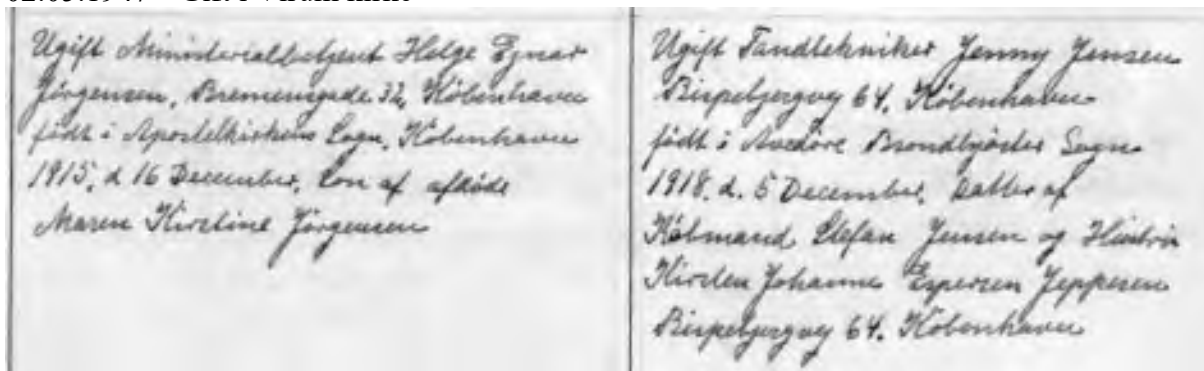 Ugift Ministerialbetjent Helge Ejnar
Jörgensen, Bremensgade 32, København
født i Apostelkirkens Sogn, København
1915, d 16 December, Søn af afdøde
Maren Kirstine Jörgensen
Ugift Tandtekniker Jenny Jensen
Bispebjergvej 64. København
født i Avedöre Brøndbyöster Sogn
1918. d. 5 December, Datter af
Købmand Stefan Jensen og Hustru
Kirsten Johanne Espersen Jeppesen
Bispebjergvej 64. København